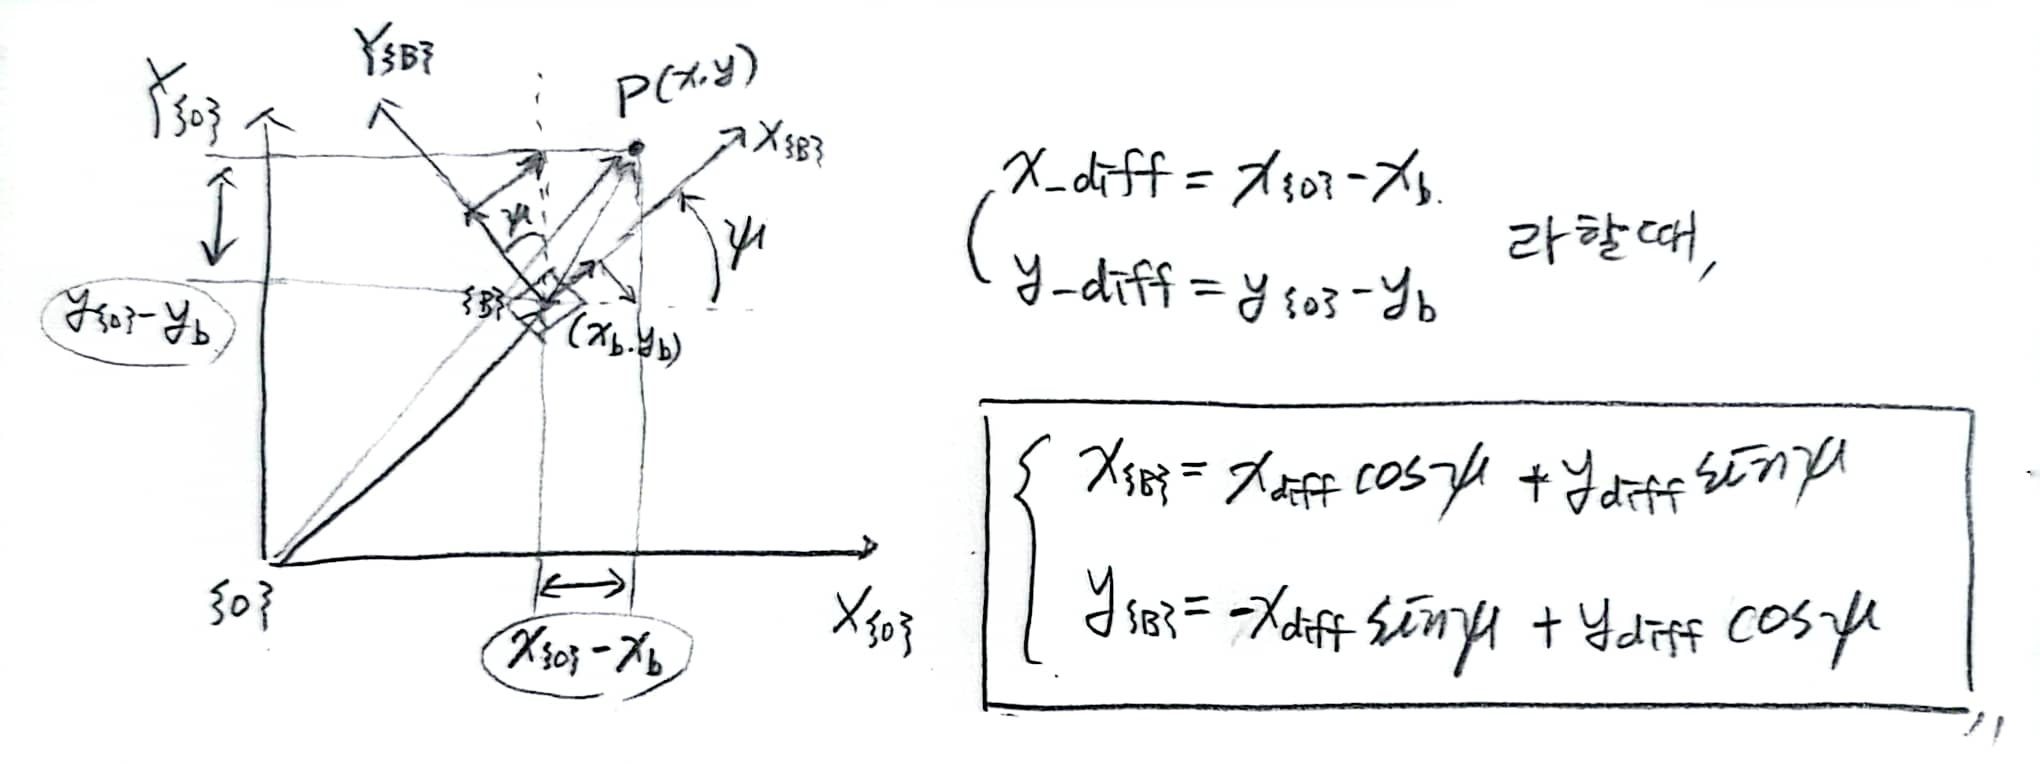 Y{B}
Y{0}
P(x,y)
X{B}
ψ
ψ
{B}
(x_b, y_b)
y{0}-y_b
{0}
X{0}
x{0}-x_b
x_diff = x{0}-x_b.
y_diff = y{0}-y_b
라 할 때,
x{B} = x_diff cosψ + y_diff sinψ
y{B} = -x_diff sinψ + y_diff cosψ